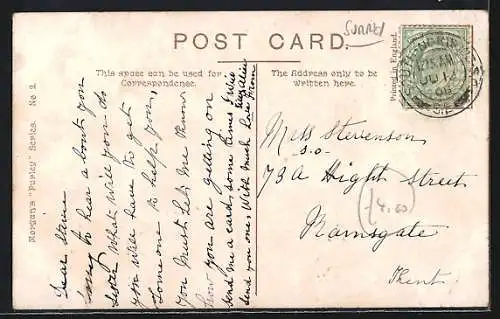 SURREY
POST CARD.
This space can be used for
Correspondence.
The Address only to be
written here.
Printed in England.
Morgan's "Purley" Series. No 2.
Dear
sorry to hear a bout you
What will you do
you will have to get
Some one to help you.
You Must Let Me Know
how you are getting on
Send me a card some times I will
send you one, With much Love From
Miss Stevenson
73A Hight Street
Ramsgate
Kent.
(4.00)